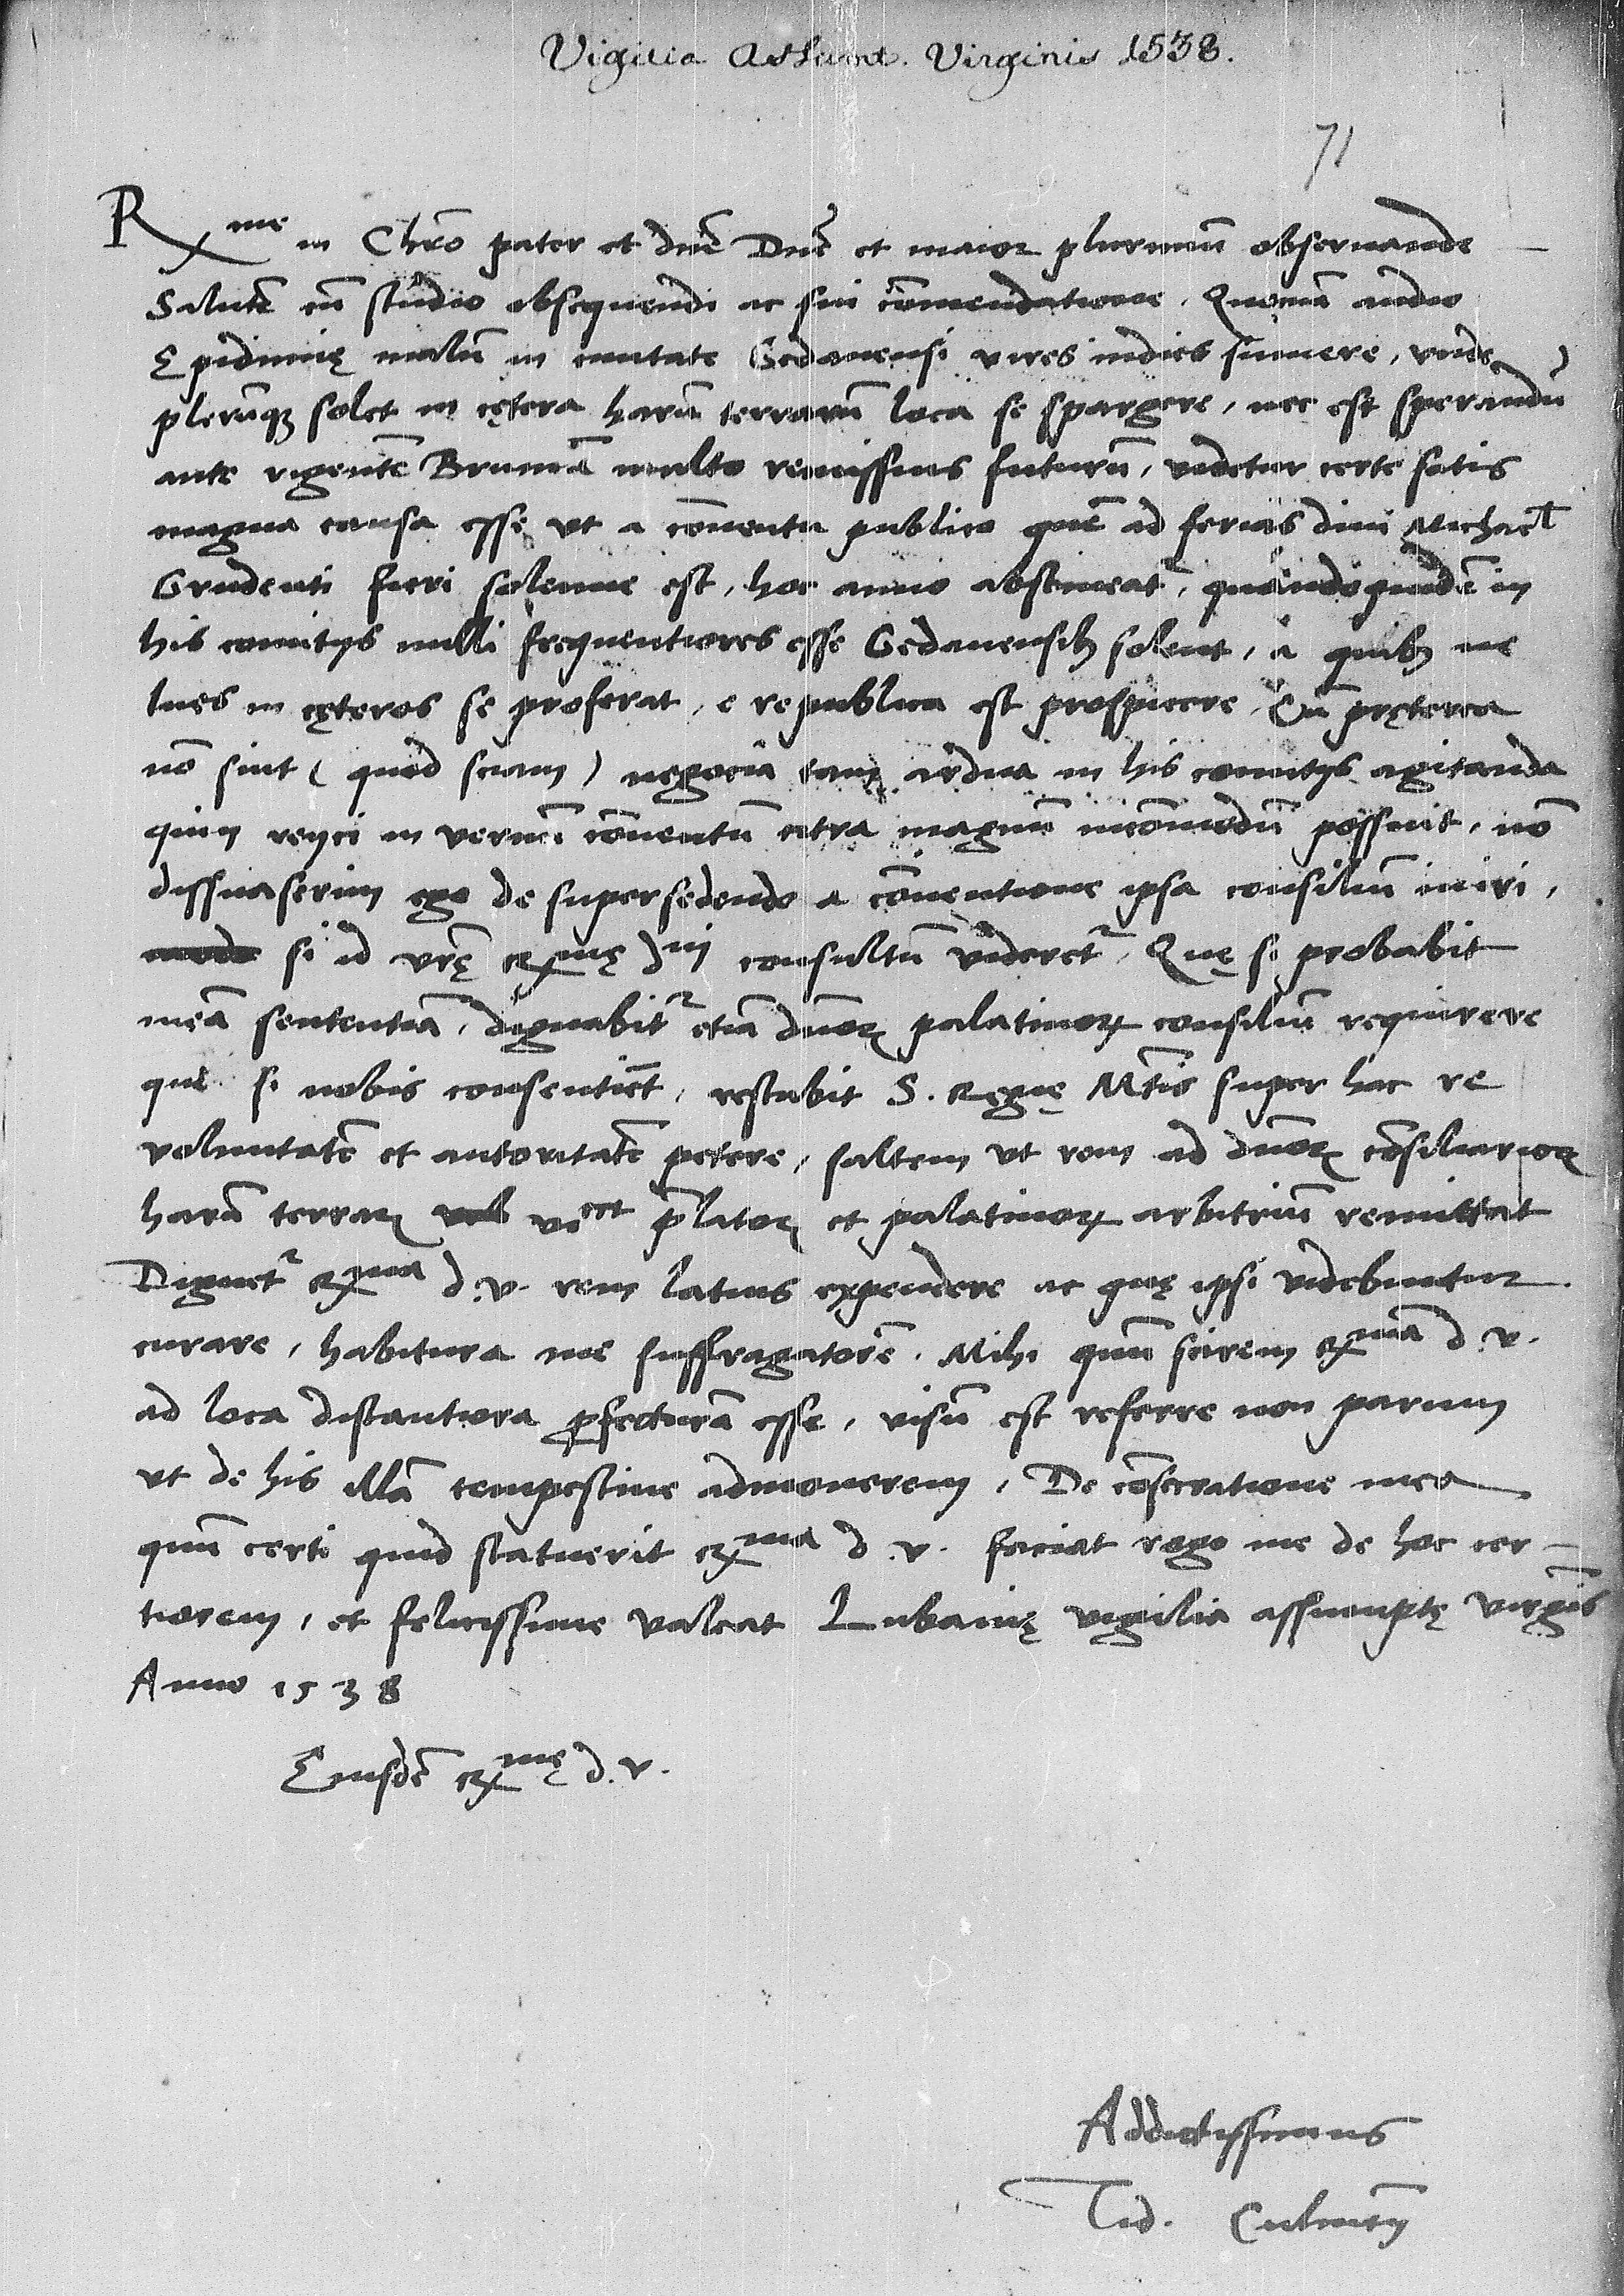 Vigilia Assumt. Virginis 1538.
71
Rx me in Chro pater et dne Dne et maior plurimu observande
Salute cu studio obsequendi ac sui comendatione. Quonia audio
Epidimię malu in civitate Gedanensi vires indies sumere, unde
plerunq solet in cętera haru terraru loca se spargere, nec est sperandu
ante rigente Bruma multo remissius futuru, videtur certe satis
magna causa esse, ut a conventu publico que ad ferias divi Michael
Grudenti fieri solenne est, hoc anno abstineat, quandoquide in
his comitijs nulli frequentiores esse Gedanensib solent, a quib ne
lues in cęteros se proferat, e republica est prospicere. Cu pręterea
no sint (quod sciam) negocia tam ardua in his comitijs agitanda
quin reijci in vernu conventu citra magnu incomodu possint, no
dissuaserim ego de supersedendo a conventione ipsa consiliu iniri,
si id vrę Rxmę d ni consultu videret. Quę si probabit
mea sententia, dignabit etia dnor palatinor consiliu requirere
qui si nobis consentiet, restabit S. Regię Mtis super hac re
voluntate et autoritate petere, saltem ut rem ad dnor consiliarior
haru terrar vel videlicet prlator et palatinor arbitriu remittat
Dignet Rxma d. v. rem latius expendere ac quę ipsi videbuntur
curare, habitura me suffragatore. Mihi quu scirem Rxma d. v.
ad loca distantiora profectura esse, visu est referre non parum
ut de his illa tempestive admonerem. De consecratione mea
quu certi quid statuerit Rxma d. v. faciat rogo me de hoc cer-
tiorem, et felicissime valeat Lubavię vigilia assumptę virginis
Anno 1538
Eiusde Rxmę d. v.
Addictissimus
Tid. Culmen